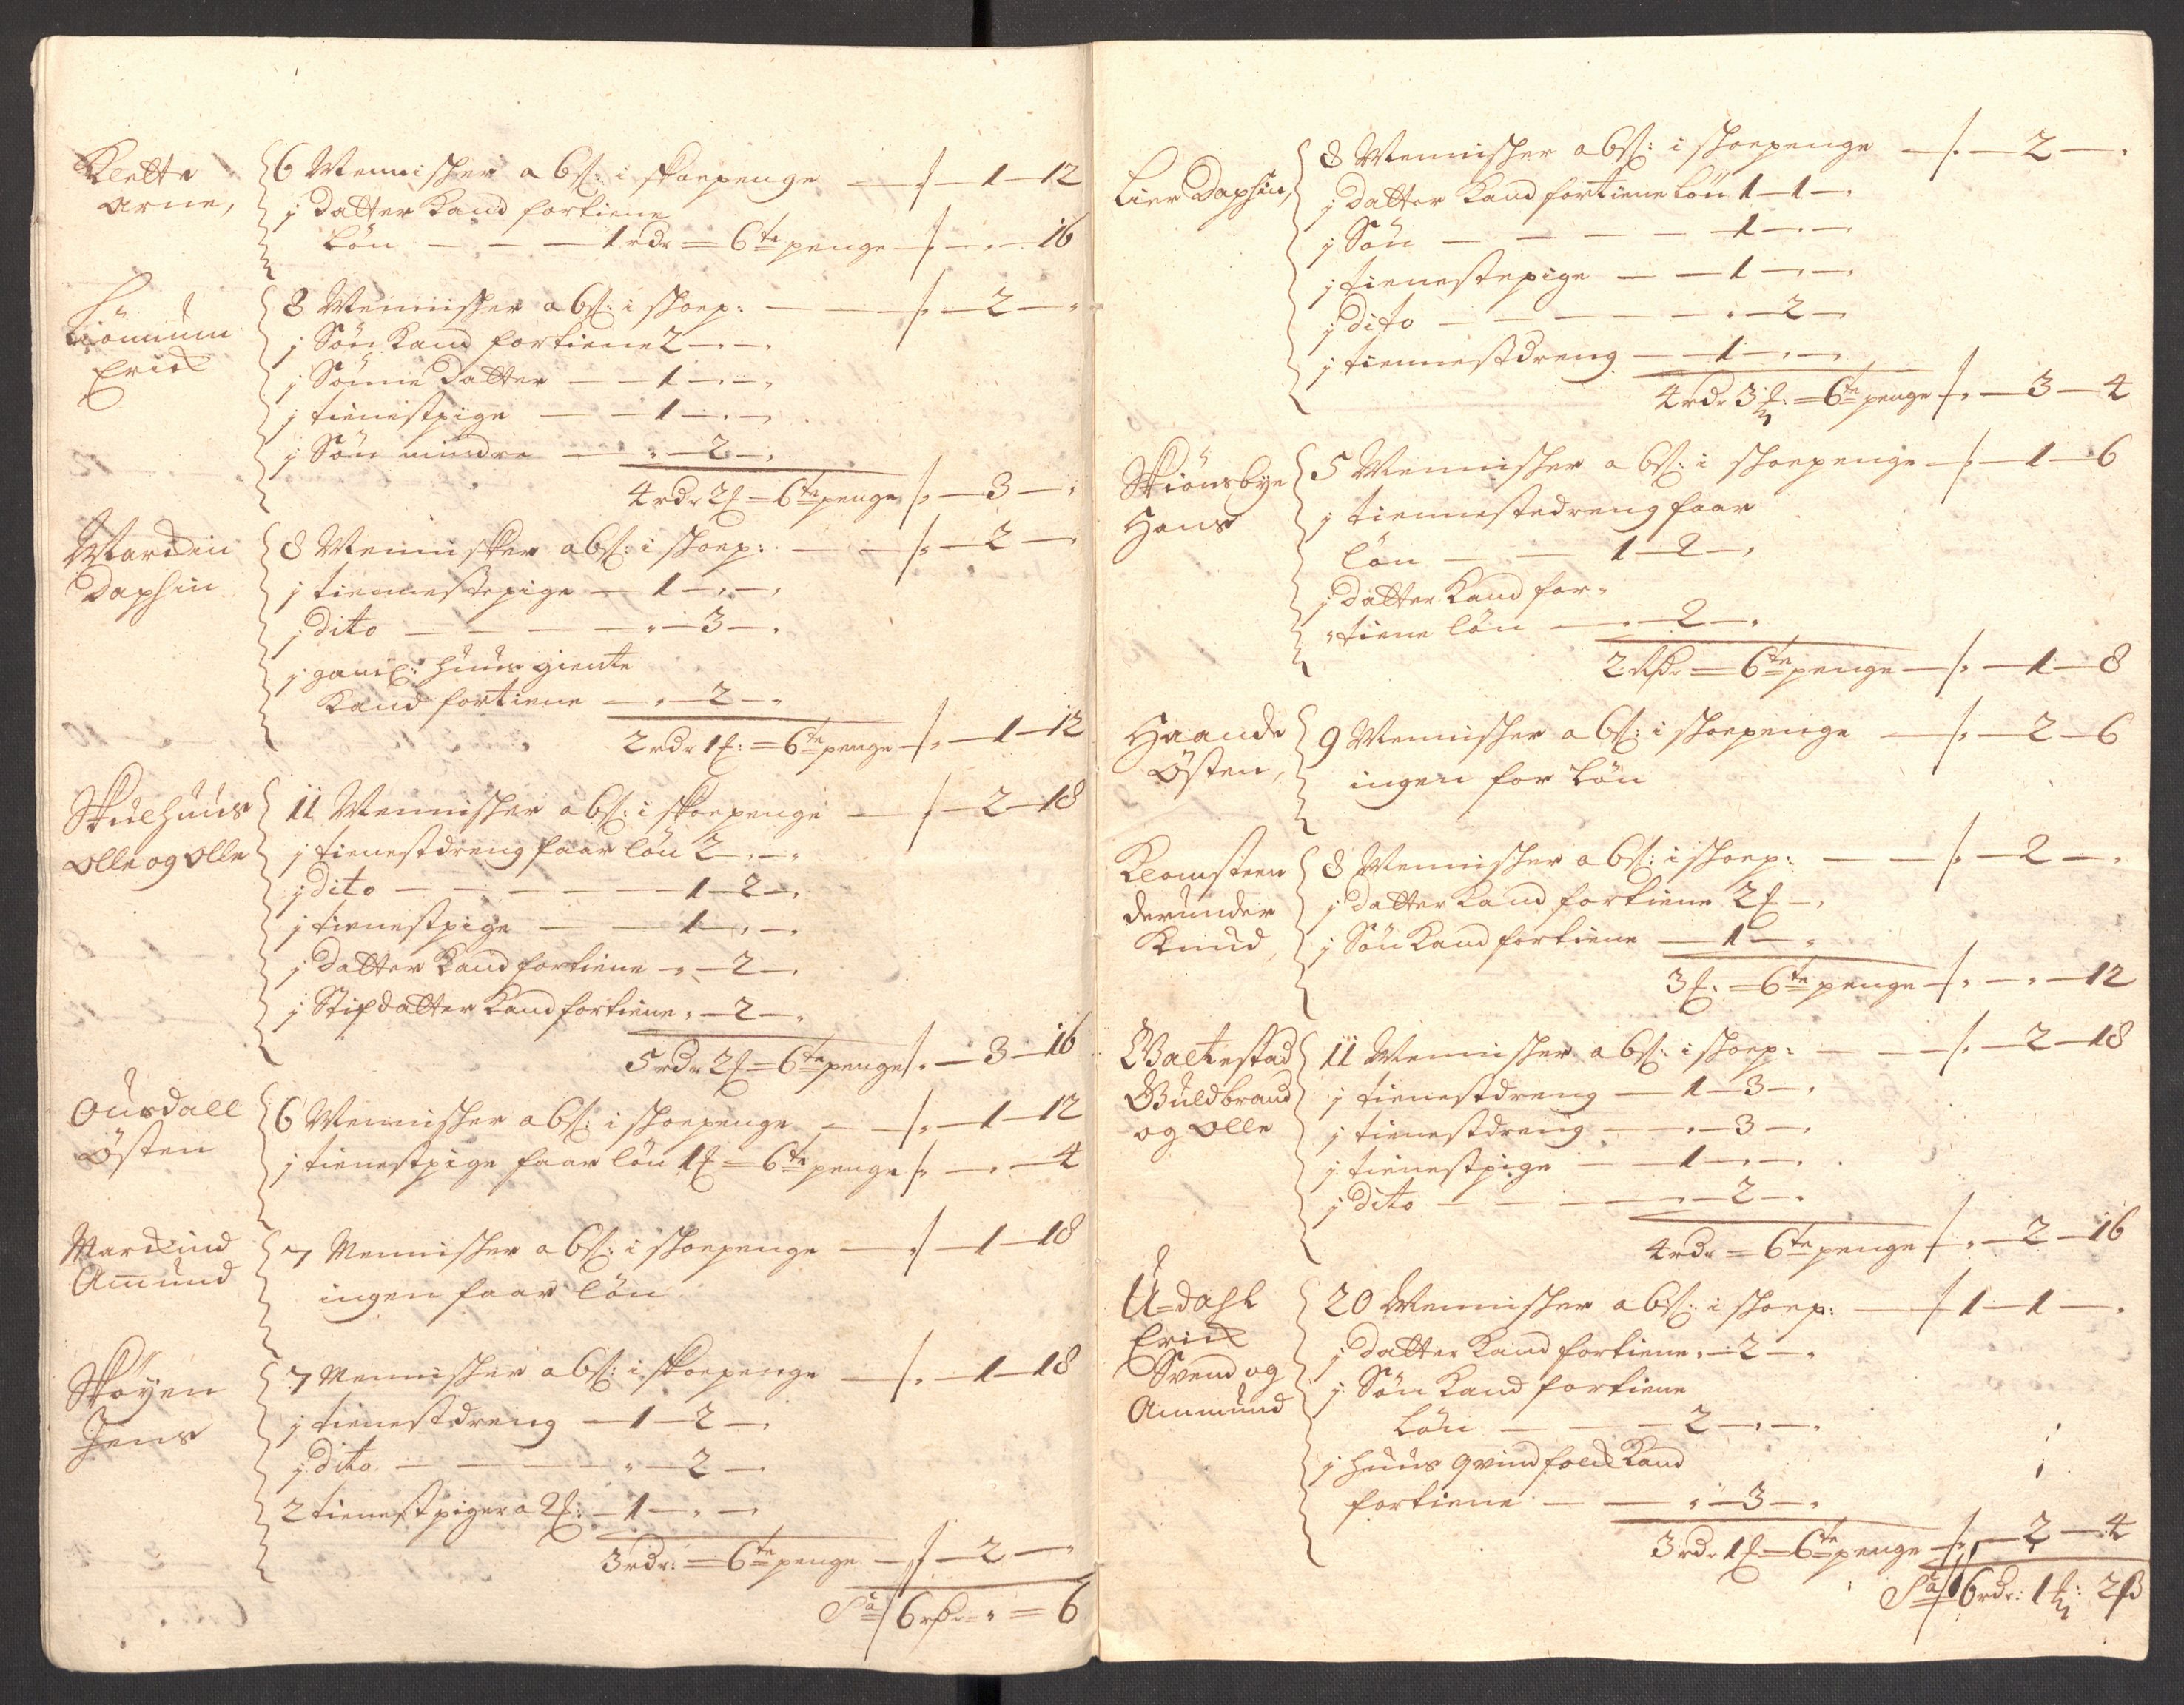 Klette
Arne,
6 Mennisker a 6 s: i skoepenge — 1 — 12
j datter kand fortiene
løn — — — 1 rdr = 6te penge — „ — 16
Liömmum
Erich
8 Mennisker a 6 s: i skoep: — — 2 — „
j Søn kand fortiene 2 — „ — „
j Sønne datter — — 1 — „ — „
j tienistpige — — 1 — „ — „
j Søn mindre — „ — 2 — „
4 rdr 2 = 6te penge „ — 3 — „
Marchen
Daphin
8 Mennisker a 6 s: i skoep: — — „ — 2 —
j tiennestepige — 1 — „ — „
j dito — — — — „ — 3 — „
j gaml: huus giente
kand fortiene — „ — 2 — „
2 rdr 1 : = 6te penge — „ — 1 — 12
Skulhuus
Olle og Olle
11 Mennisker a 6 s: i skoepenge — — 2 — 18
j tienestdreng faar løn 2 — „ — „
j dito — — — — — 1 — 2 — „
j tienestpige — — 1 — „ — „
j datter kand fortiene „ — 2 — „
j Stifdatter kand fortiene „ — 2 — „
5 rdr 2 = 6te penge „ — 3 — 16
Ousdall
Østen
6 Mennisker a 6 s: i skoepenge — — „ — 1 — 12
j tienestpige faar løn 1 = 6te penge „ — „ — 4
Marchind
Amund
7 Mennisker a 6 s: i skoepenge — — 1 — 18
ingen faar løn
Skøyen
Jens
7 Mennisker a 6 s: i skoepenge — „ — 1 — 18
j tienestdreng — 1 — 2 — „
j dito — — — — „ — 2 —
2 tienestpiger a 2 : — 1 — „ —
3 rdr: = 6te penge — — 2 —
Sa 6 rdr = „ = 6
Lier Daphin,
8 Mennisker a 6 s: i skoepenge — „ — 2 — „
j datter kand fortiene løn 1 — 1 — „
j Søn — — — — — 1 — „ —
j tienestepige — — 1 — „ — „
j dito — — — — — „ — 2 —
j tiennestdreng — — 1 — „ — „
4 rdr 3 : = 6te penge „ — 3 — 4
Skiønsbye
Hans
5 Mennisker a 6 s: i skoepenge — „ — 1 — 6
j tiennestedreng faar
løn — — 1 — 2 — „
j datter kand for„
„tiene løn — „ — 2 — „
2 rdr = 6te penge — „ — 1 — 8
Haande
Østen,
9 Mennisker a 6 s: i skoepenge — „ — 2 — 6
ingen for løn
Klomsteen
derunder
Knud,
8 Mennisker a 6 s: i skoep: — — „ — 2 — „
j datter kand fortiene 2 — „
j Søn kand fortiene — 1 — „
3 : = 6te penge „ — „ — 12
Valkestad
Guldbrand
og Olle
11 Mennisker a 6 s: i skoep: — — „ — 2 — 18
j tienestdreng — 1 — 3 — „
j tienestdreng — „ — 3 — „
j tienestpige — 1 — „ — „
j dito — — — „ — 2 — „
4 rdr = 6te penge „ — 2 — 16
U=dahl
Erich
Svend og
Ammund
20 Mennisker a 6 s: i skoep: — 1 — 1 — „
j datter kand fortiene „ — 2 — „
j Søn kand fortiene
løn — — — 2 — „ — „
j huus qvindfolch kand
fortiene — — „ — 3 — „
3 rdr 1 = 6te penge „ — 2 — 4
Sa 16 rdr: 1 : 2 β